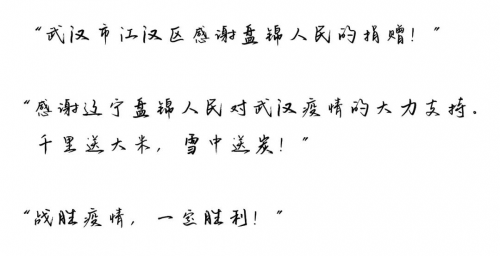 “武汉市江汉区感谢盘锦人民的捐赠！”
“感谢辽宁盘锦人民对武汉疫情的大力支持.
千里送大米，雪中送炭！”
“战胜疫情，一定胜利！”